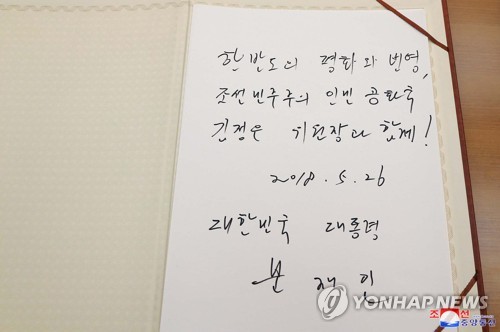 한반도의 평화와 번영,
조선민주주의 인민 공화국
김정은 위원장과 함께!
2018. 5. 26
대한민국 대통령
문재인
YONHAPNEWS
조선
중앙통신